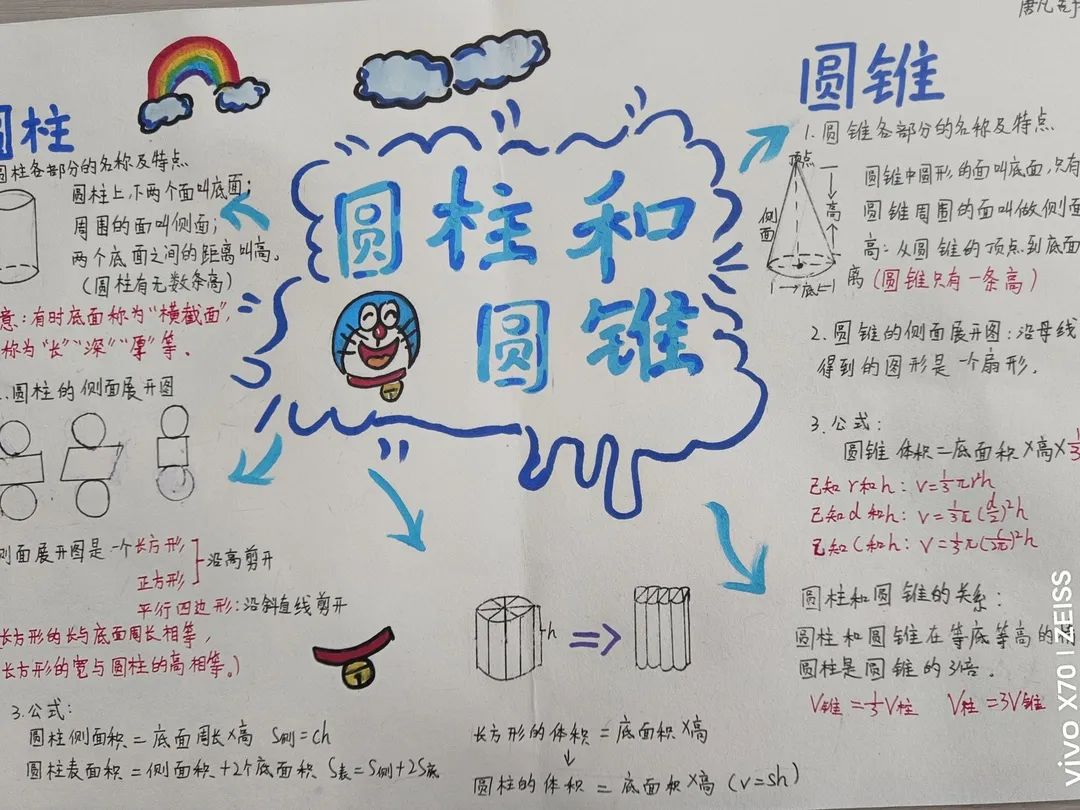 圆柱
圆柱各部分的名称及特点
圆柱上、下两个面叫底面;
周围的面叫侧面;
两个底面之间的距离叫高。
(圆柱有无数条高)
意:有时底面称为“横截面”,
称为“长”“深”“厚”等。
2.圆柱的侧面展开图
侧面展开图是一个长方形
正方形
沿高剪开
平行四边形:沿斜直线剪开
长方形的长与底面周长相等,
长方形的宽与圆柱的高相等。)
3.公式:
圆柱侧面积=底面周长×高 S侧=ch
圆柱表面积=侧面积+2个底面积 S表=S侧+2S底
圆柱和
圆锥
h
长方形的体积=底面积×高
圆柱的体积=底面积×高(v=sh)
圆锥
1.圆锥各部分的名称及特点
顶点
侧面
高
底
圆锥中圆形的面叫底面,只有
圆锥周围的面叫做侧面
高:从圆锥的顶点到底面
离(圆锥只有一条高)
2.圆锥的侧面展开图:沿母线
得到的图形是一个扇形.
3.公式:
圆锥体积=底面积×高×1/3
已知r和h:v=1/3πr²h
已知d和h:v=1/3π(d/2)²h
已知C和h:v=1/3π(C/2π)²h
圆柱和圆锥的关系:
圆柱和圆锥在等底等高的情
圆柱是圆锥的3倍.
V锥=1/3V柱 V柱=3V锥
vivo X70 | ZEISS